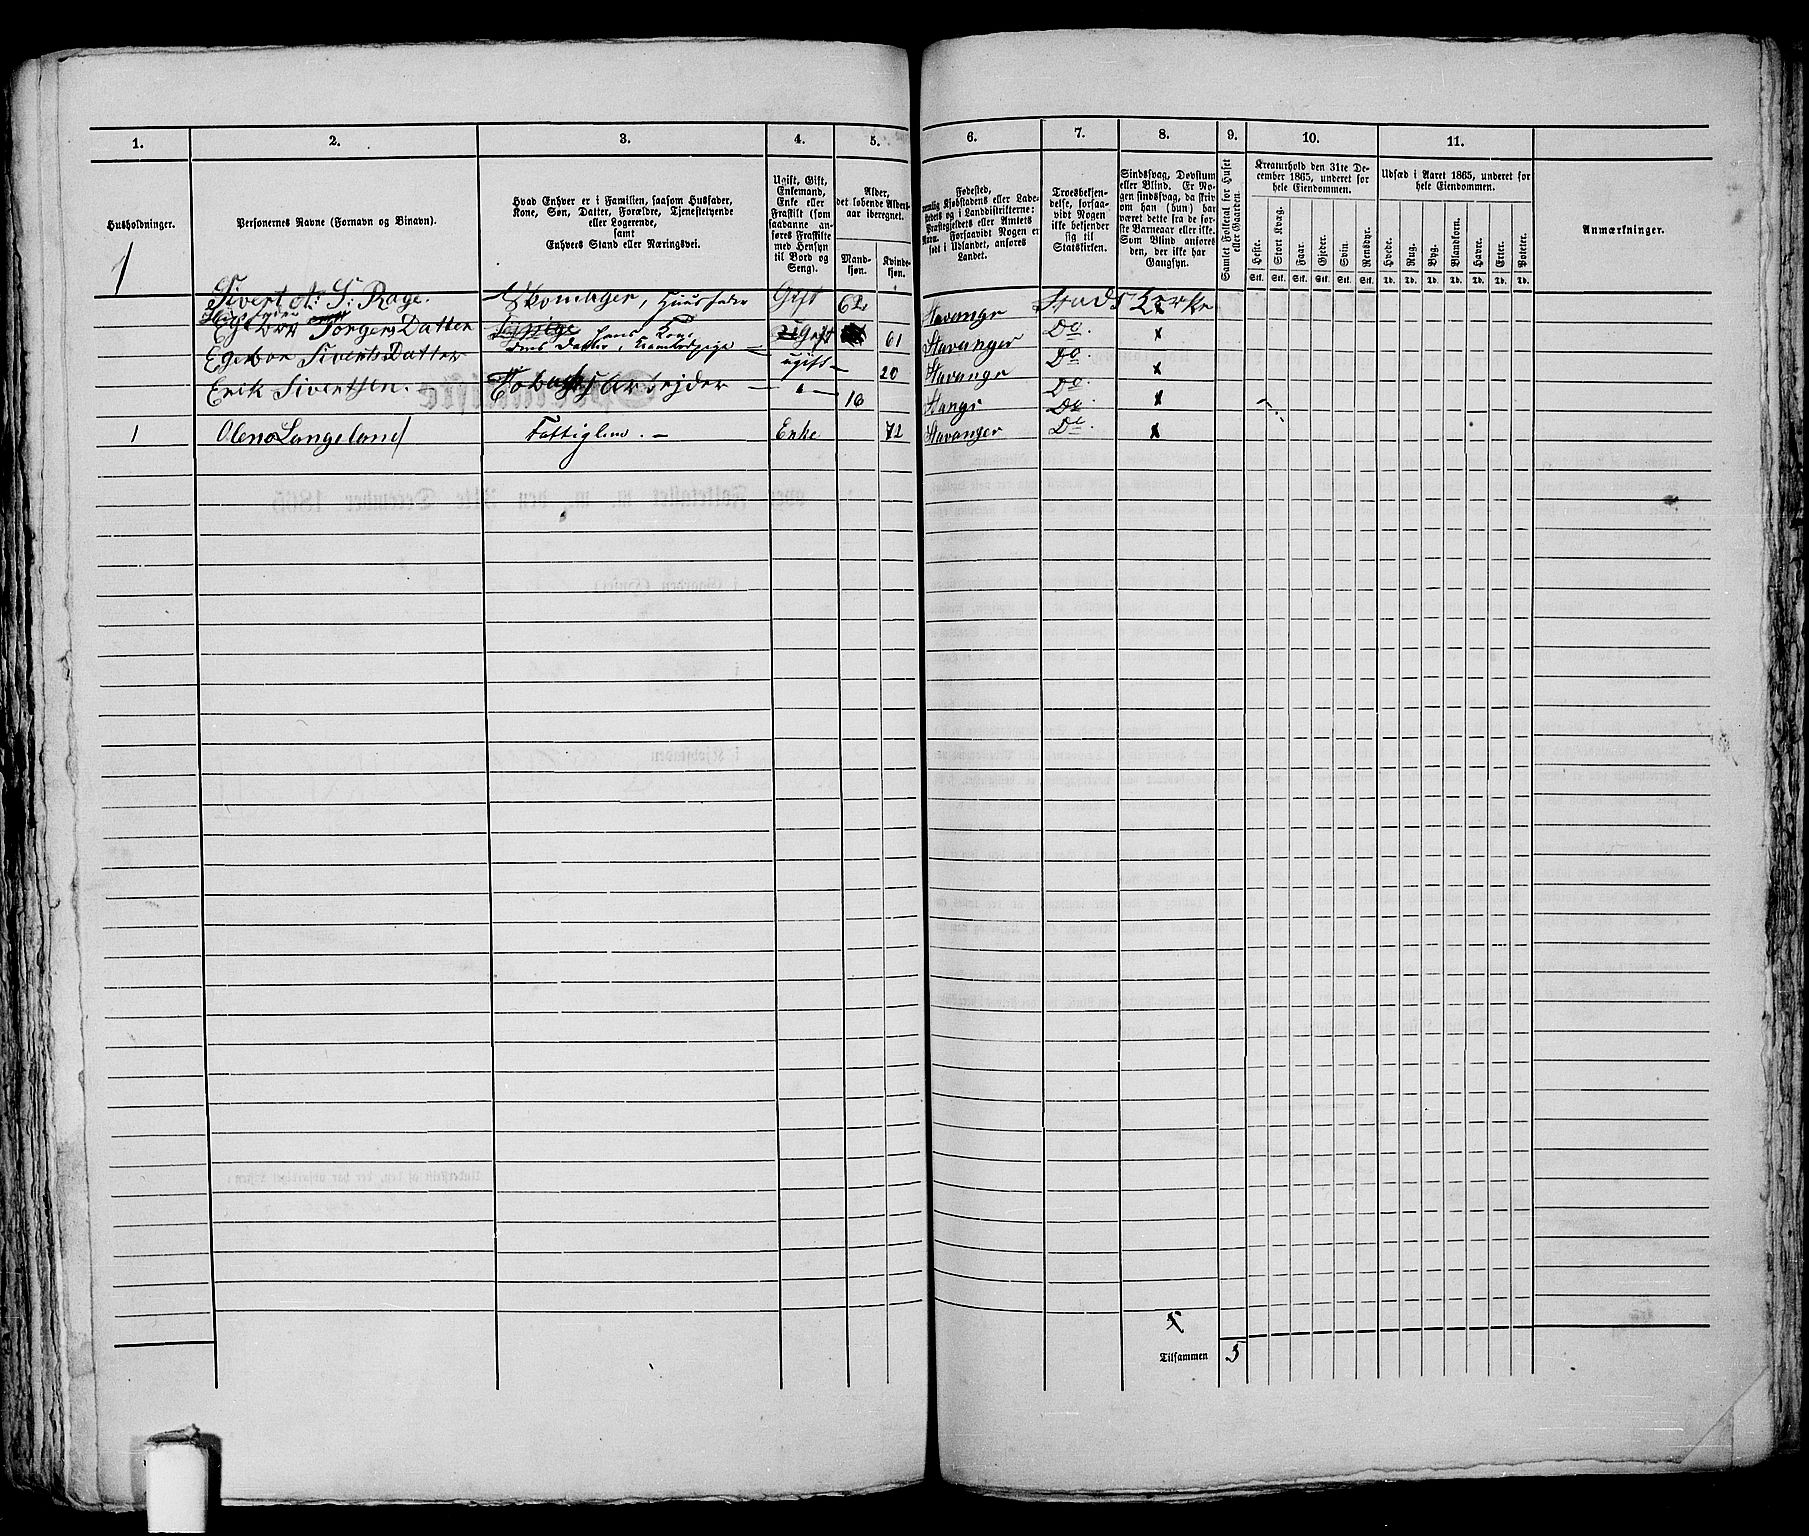 1. 2. 3. 4. 5. 6. 7. 8. 9. 10. 11.
Husholdninger.
Personernes Navne (Fornavn og Binavn).
Hvad Enhver er i Familien, saasom Husfader,
Kone, Søn, Datter, Forældre, Tjenestetyende
eller Logerende,
samt
Enhvers Stand eller Næringsvei.
Ugift, Gift,
Enkemand,
Enke eller
Fraskilt (som
saadanne an-
føres Fraskilte
med Hensyn
til Bord og
Seng).
Alder,
det løbende Alders-
aar iberegnet.
Mand-
kjøn.
Kvinde-
kjøn.
Fødested,
nemlig Kjøbstadens eller Lade-
stedets og i Landdistrikterne:
Præstegjeldets eller Amtets
Navn. Forsaavidt Nogen er
født i Udlandet, anføres
Landet.
Troesbekjen-
delse, forsaa-
vidt Nogen
ikke bekjender
sig til
Statskirken.
Sindssvag, Døvstum
eller Blind. Er No-
gen sindssvag, da skriv
om han (hun) har
været dette fra de før-
ste Barneaar eller ikke.
Som Blind anføres
den, der ikke har
Gangsyn.
Samlet Folketal for Huset
eller Gaarden.
Kreaturhold den 31te De-
cember 1865, underet for
hele Eiendommen.
Heste. Stort Kvæg. Faar. Gjeder. Svin. Rensdyr.
Stk. Stk. Stk. Stk. Stk. Stk.
Udsæd i Aaret 1865, underet for
hele Eiendommen.
Hvede. Rug. Byg. Blandkorn. Havre. Erter. Poteter.
Td. Td. Td. Td. Td. Td. Td.
Anmærkninger.
1 Sivert A: S: Rage. Skomager, Huusfader Gift 62 Stavanger Stads Kirke x
Torgers Datter hans Kone Gift 61 Stavanger Do x
Egebor Siverts Datter Datter, ugift 20 Stavanger Do x
Erik Sivertsen. Tobaksarbejder — " — 16 Do x
Do
1 Olena Langeland Fattiglem. — Enke 72 Stavanger Do x
5
Tilsammen 5